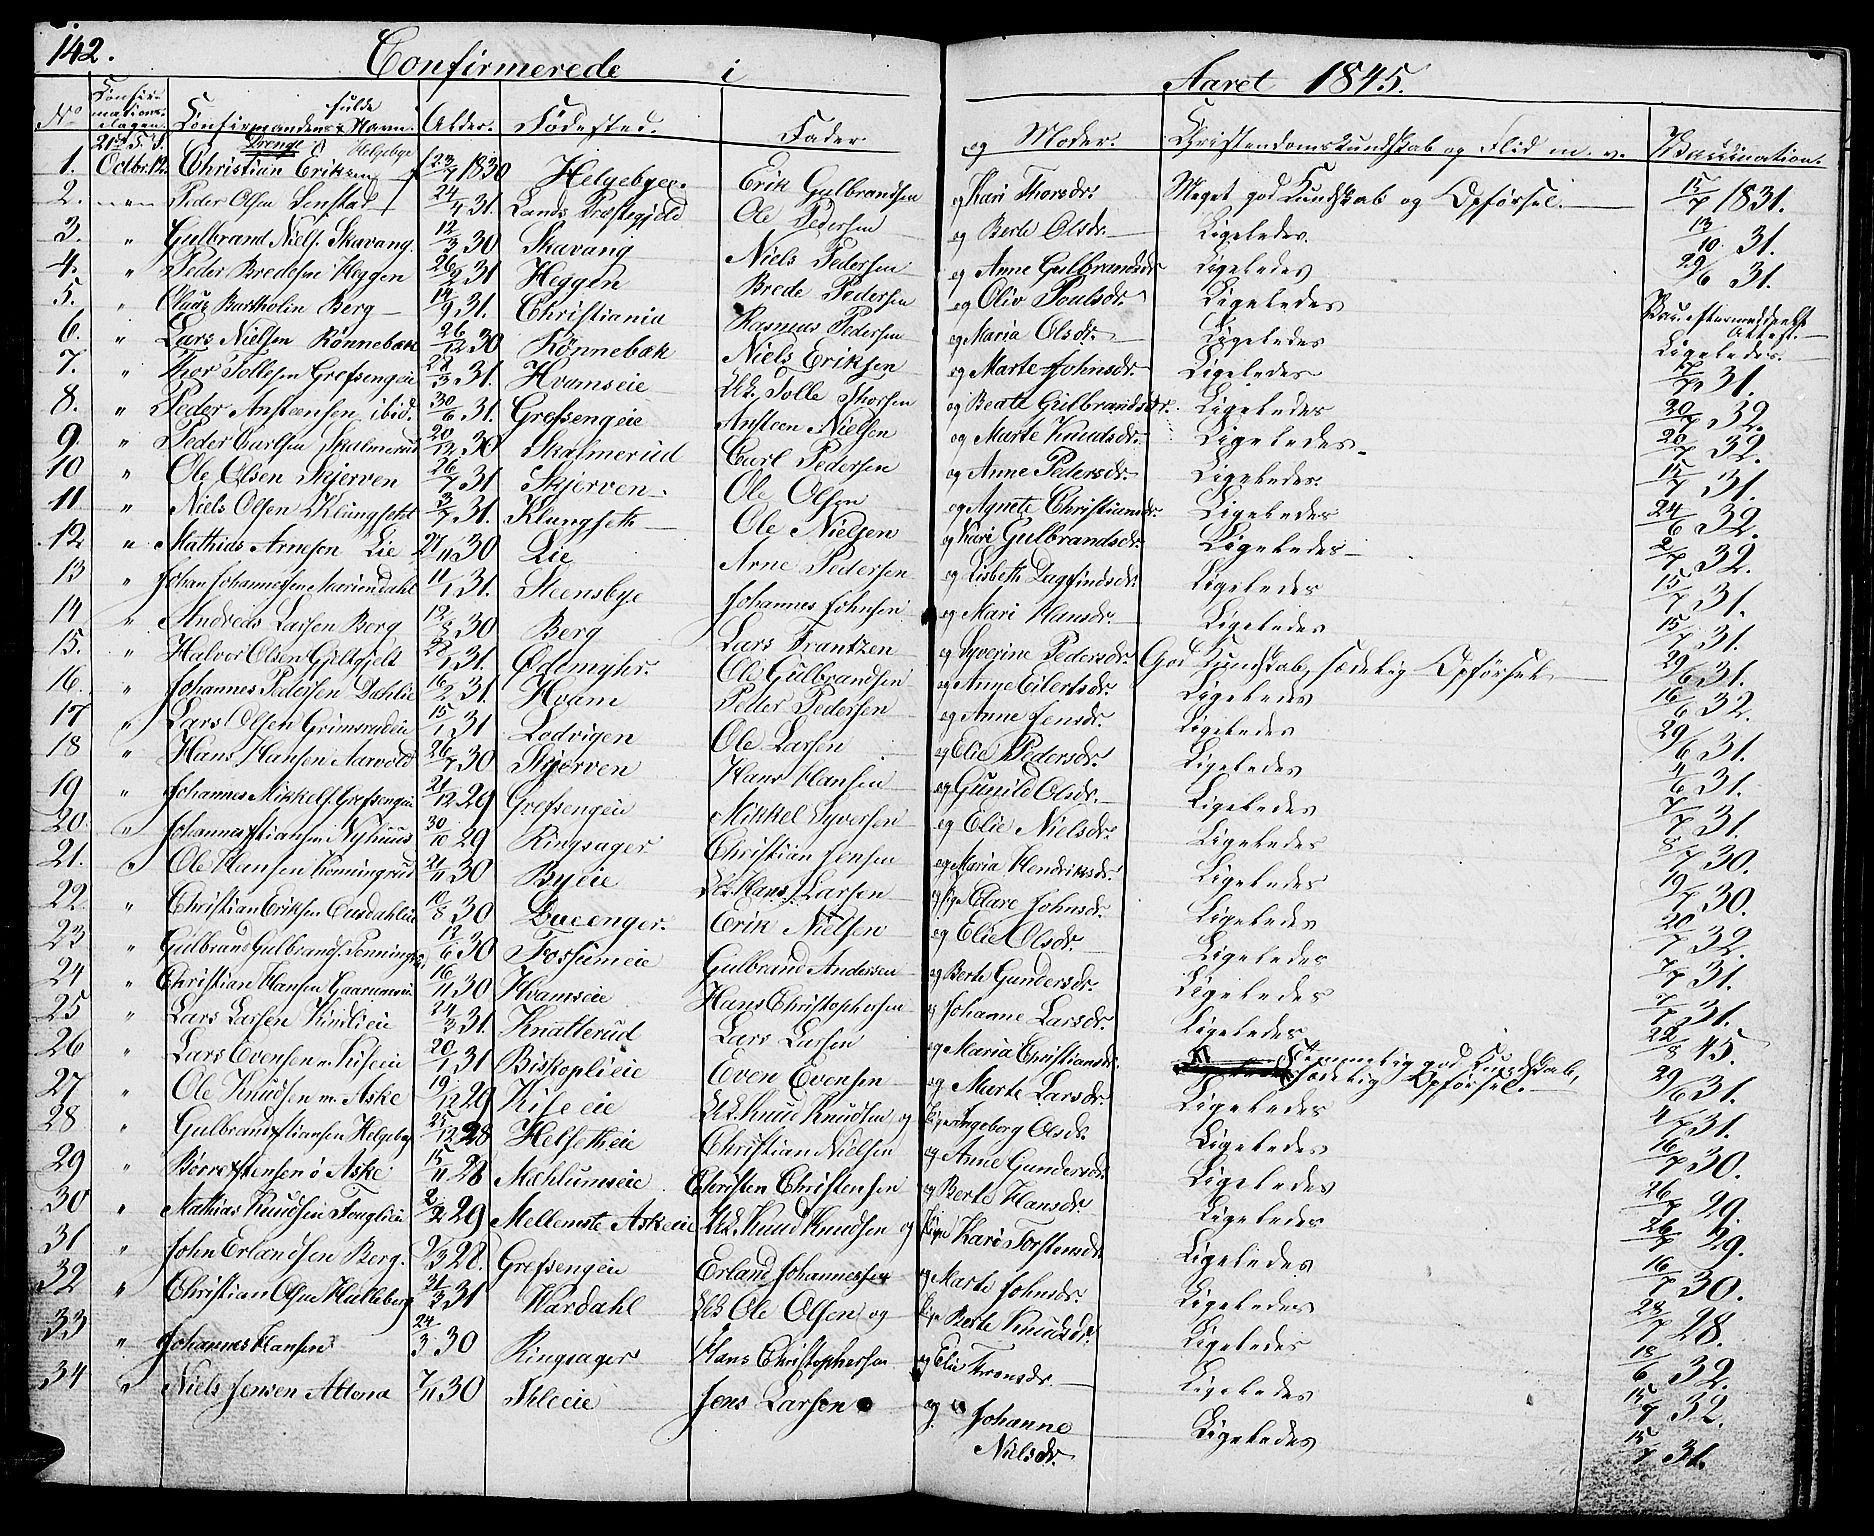 142. Confirmerede i Aaret 1845.
No Confirmationsdagen. Confirmandens fulde Navn. Alder. Fødested. Fader og Moder. Christendomskundskab og Flid m. v. Vaccination.
Drenge
1. Octbr. 12 Christian Eriksen Helgebye 23/7 1830 Helgebye. Erik Gulbrandsen og Kari Thorsdr. Meget god Kundskab og Opførsel. 15/7 1831.
2. Peder Olsen Senstad 24/4 31. Lands Præstegjeld Ole Pedersen og Berte Olsdr. Ligeledes. 13/10 31.
3. " Gulbrand Niels. Skavang. 12/3 30 Skavang Niels Pedersen og Anne Gulbrandsdr Ligeledes 29/6 31.
4. " Peder Bredesen Heggen 26/2 31 Heggen Brede Pedersen og Oliv Poulsdr. Ligeledes
5. " Claus Bartholin Berg 14/9 31. Christiania Rasmus Pedersen og Maria Olsdr. Ligeledes Ligeledes.
6. " Lars Nielsen Rønnebæk 26/12 30 Rønnebæk Niels Eriksen og Marte Johnsdr. Ligeledes 31.
7. " Thor Tollefsen Grefsengeie 28/3 31. Hvamseie Tolle Thorsen og Beate Gulbrandsdr. Ligeledes 20/7 32.
8. " Peder Anstensen ibid. 30/6 31. Grefsengeie Ansteen Nielsen og Marte Knudsdr. Ligeledes 20/7 32.
9. " Peder Carlsen Skalmerud 20/12 30 Skalmerud Carl Pedersen og Anne Pedersdr. Ligeledes. 15/7 31.
10 " Ole Olsen Skjerven 26/7 31 Skjerven Ole Olsen og Agnete Christiansdr. Ligeledes 24/6 32.
11 " Niels Olsen Klungseth 3/7 31. Klungseth Ole Nielsen og Kari Gulbrandsdr. Ligeledes 2/7 32.
12 " Mathias Arnesen Lie 27/11 30 Lie Arne Pedersen og Lisbeth Dagfindsdr. Ligeledes 15/7 31.
13 " Johan Johannesen Mariendahl 11/1 31. Steensbye Johannes Johnsen og Mari Hansdr. Ligeledes 15/7 31.
14 " Andreas Larsen Berg 12/8 30 Berg Lars Frantzen og Syverine Pedersdr. God Kundskab, sædelig Opførsel 29/6 31.
15. " Halvor Olsen 28/1 31. Ødemyhr. Ole Gulbrandsen og Anne Eilertsdr. Ligeledes 16/6 32.
16. " Johannes Pedersen Dahlie 16/2 31. Hvam Peder Pedersen og Anne Jensdr. Ligeledes 29/6 31.
17 " Lars Olsen Grimsrudeie 15/1 31 Lodvigen Ole Larsen og Elie Pedersdr. Ligeledes 4/6 31.
18 " Hans Hansen Aarvold 26/7 30 Skjerven Hans Hansen og Gunild Olsdr. Ligeledes 7/7 31.
19 " Johannes Mikkels. Grefsengeie 21/12 29 Grefsengeie Mikkel Syversen og Elie Nielsdr. Ligeledes 8/7 30.
20. " Johannes Xstiansen Nyhuus 30/10 29. Ringsager. Christian Jensen og Maria Hendriksdr. Ligeledes 19/7 30.
21. " Ole Hansen 21/11 30 Byeie Hans Larsen og Clare Johnsdr. Ligeledes 20/7 32.
22. " Christian Eriksen 10/8 30 Erik Nielsen og Elie Olsdr. Ligeledes 7/7 31.
23 " Gulbrand Gulbrands. 12/6 30 Fossumeie Gulbrand Andersen og Berte Gundersdr. Ligeledes 7/7 31.
24 " Christian Hansen 16/11 30 Hvamseie Hans Christophersen og Johanne Larsdr. Ligeledes 22/8 45.
25 " Lars Larsen Kindlieie 24/3 31. Knatterud Lars Larsen og Maria Christiansdr. Temmelig god Kundskab, sædelig Opførsel. 29/6 31.
26 " Lars Evensen 20/1 31 Biskoplieie Even Evensen og Marte Larsdr. Ligeledes 4/7 31.
27 " Ole Knudsen n. Aske 19/12 29 Kiseeie Knud Knudsen og Ingeborg Olsdr. Ligeledes 16/7 30.
28 " Gulbrand Xstiansen Helgeby 25/12 28 Helsetheie Christian Nielsen og Anne Gundersdr. Ligeledes 26/7 29.
29 " Børre Xstensen ø Aske 15/11 28 Mæhlumseie Christen Christensen og Berte Hansdr. Ligeledes 26/7 29.
30 " Mathias Knudsen 2/2 29 Mellemste Askeeie Knud Knudsen og Kari Torstensdr. Ligeledes 16/7 30.
31 " John Erlandsen Berg. 9/3 28. Grefsengeie Erland Johannessen og Marte Johnsdr. Ligeledes 28/7 28.
32 " Christian Olsen Hulleberg 31/3 31 Wardahl Ole Olsen og Berte Knudsdr. Ligeledes 18/6 32.
33 " Johannes Hansen 24/3 30 Ringsager Hans Christophersen og Elie Tronsdr. Ligeledes 15/7 32.
34 " Niels Jensen 7/11 30 Jens Larsen og Johanne Nielsdr. Ligeledes 15/7 31.